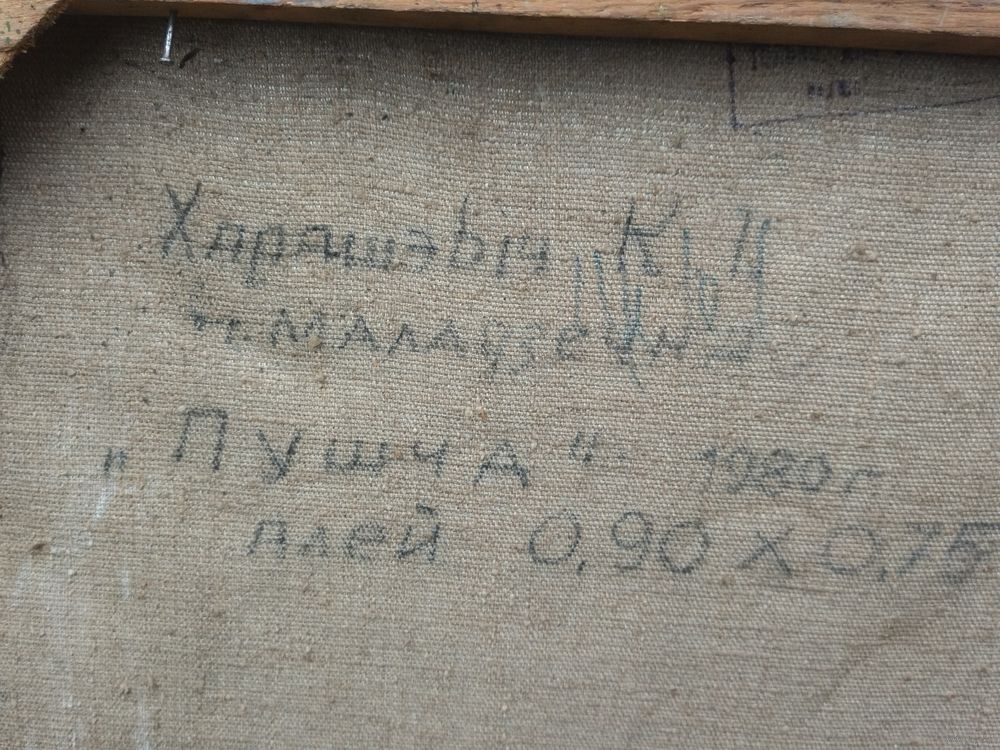 Харашэвіч К. П
г. Маладзечна
„Пушча“. 1980 г.
алей 0,90 х 0,75